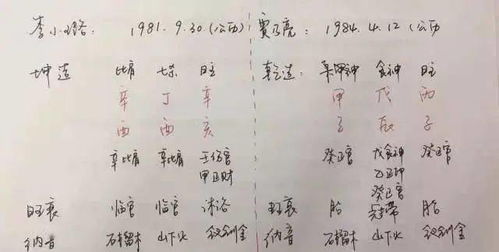 李小璐： 1981.9.30(公历) 贾乃亮： 1984.4.12(公历
坤造 比肩 七杀 日主 乾造： 枭甲神 食神 日主
辛 丁 辛 甲 戊 丙
酉 酉 亥 子 辰 子
辛比肩 辛比肩 壬伤官 癸正官 戊食神 癸正官
甲正财 乙正印
癸正官
旺衰 临官 临官 沐浴 旺衰 胎 冠带 胎
纳音 石榴木 山下火 钗钏金 纳音